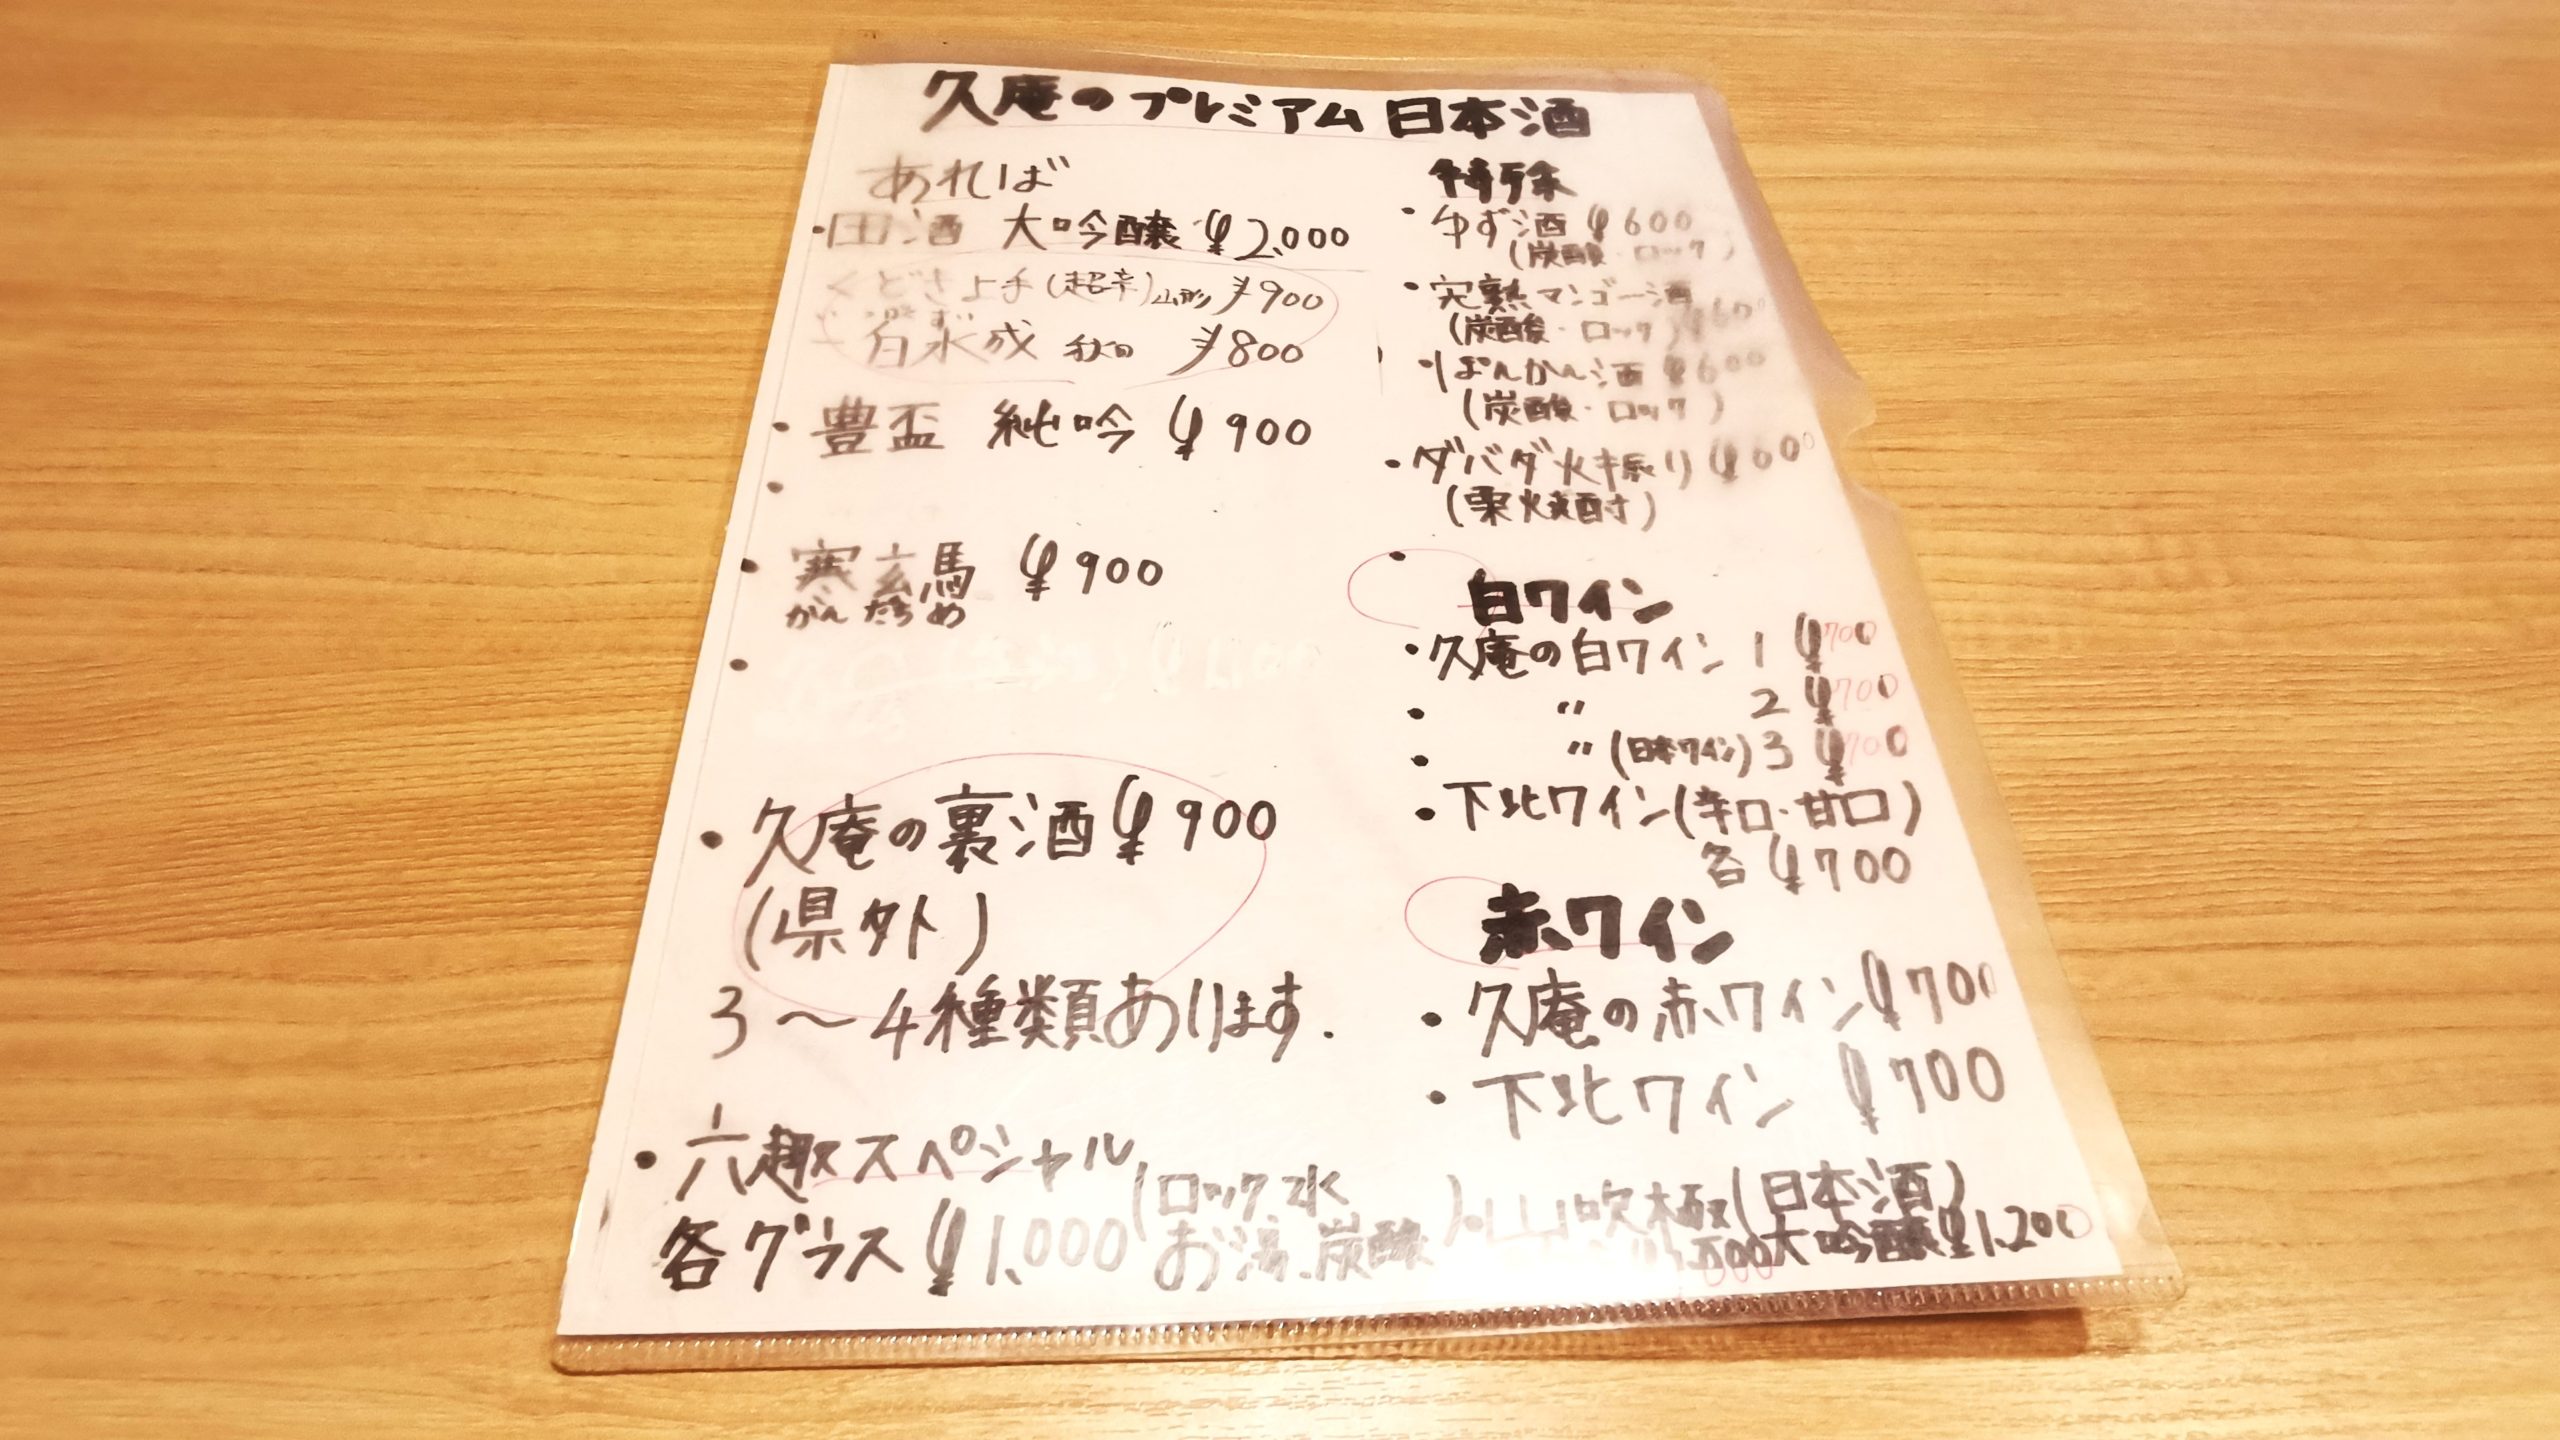 久庵のプレミアム日本酒
あれば
・田酒 大吟醸 ¥2,000
くどき上手(超辛)山形 ¥900
白水成 秋田 ¥800
・豊盃 純吟 ¥900
・
・寒立馬 ¥900
かんだちめ
・
・久庵の裏酒¥900
(県外)
3〜4種類あります.
・六趣スペシャル
各グラス¥1,000
(ロック、水
お湯、炭酸)
特殊
・ゆず酒¥600
(炭酸・ロック)
・完熟マンゴー酒
(炭酸・ロック)¥600
・ぽんかん酒¥600
(炭酸・ロック)
・ダバダ火振り¥600
(栗火焼酎)
・
白ワイン
・久庵の白ワイン1 ¥700
・〃 2 ¥700
・〃(日本ワイン)3 ¥700
・下北ワイン(辛口・甘口)
各¥700
赤ワイン
・久庵の赤ワイン¥700
・下北ワイン ¥700
・山吹極(日本酒)
大吟醸¥1,200